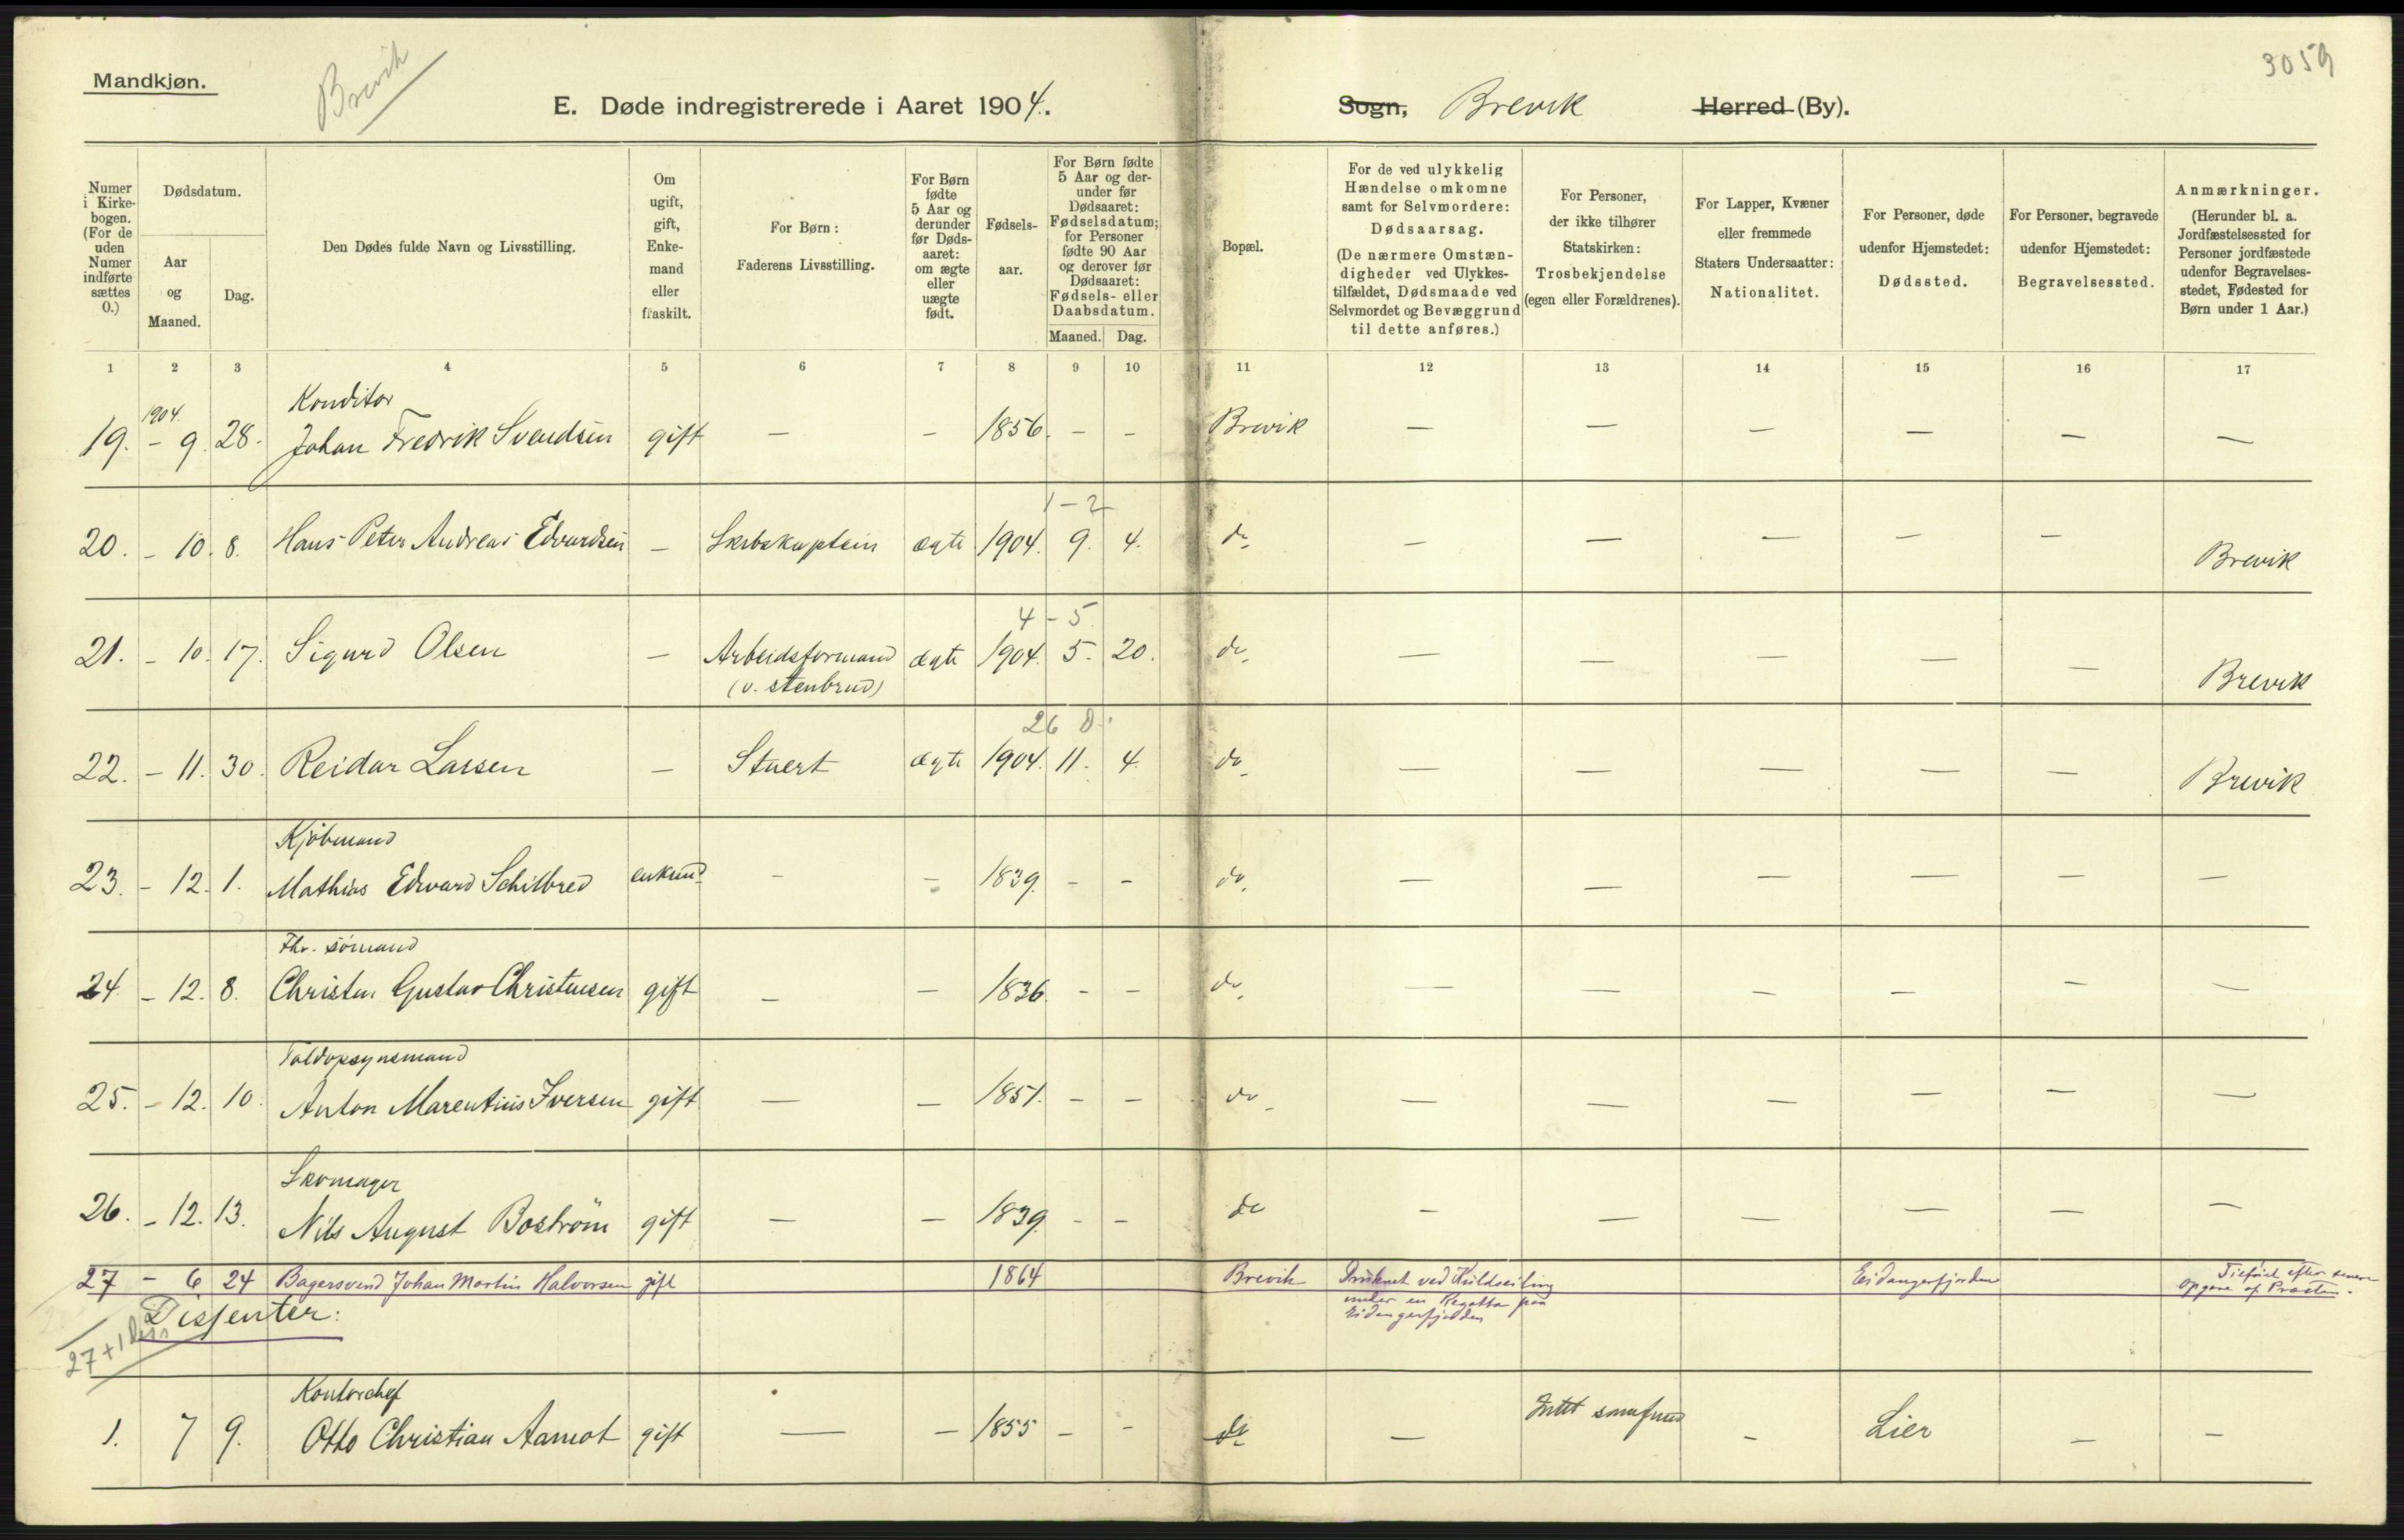 Mandkjøn.
Brevik
3059
E. Døde indregistrerede i Aaret 1904.
Sogn, Brevik Herred (By).
Numer i Kirkebogen. (For de uden Numer indførte sættes 0.)
Dødsdatum.
Aar og Maaned.
Dag.
Den Dødes fulde Navn og Livsstilling.
Om ugift, gift, Enkemand eller fraskilt.
For Børn: Faderens Livsstilling.
For Børn fødte 5 Aar og derunder før Dødsaaret: om ægte eller uægte født.
Fødselsaar.
For Børn fødte 5 Aar og derunder før Dødsaaret: Fødselsdatum; for Personer fødte 90 Aar og derover før Dødsaaret: Fødsels- eller Daabsdatum.
Maaned. Dag.
Bopæl.
For de ved ulykkelig Hændelse omkomne samt for Selvmordere: Dødsaarsag. (De nærmere Omstændigheder ved Ulykkestilfældet, Dødsmaade ved Selvmordet og Bevæggrund til dette anføres.)
For Personer, der ikke tilhører Statskirken: Trosbekjendelse (egen eller Forældrenes).
For Lapper, Kvæner eller fremmede Staters Undersaatter: Nationalitet.
For Personer, døde udenfor Hjemstedet: Dødssted.
For Personer, begravede udenfor Hjemstedet: Begravelsessted.
Anmærkninger. (Herunder bl. a. Jordfæstelsessted for Personer jordfæstede udenfor Begravelsesstedet, Fødested for Børn under 1 Aar.)
1 2 3 4 5 6 7 8 9 10 11 12 13 14 15 16 17
1904. Konditor
19. - 9. 28. Johan Fredrik Svendsen gift — - 1856. - - Brevik — — — — — —
1-2
20. - 10. 8. Hans Peter Andreas Edvardsen — Skibskaptein ægte 1904. 9. 4. do. — — — — — Brevik
4-5
21. - 10. 17. Sigurd Olsen — Arbeidsformand ægte 1904. 5. 20. do. — — — — — Brevik
(v. stenbrud)
26 D.
22. - 11. 30. Reidar Larsen — Stuert ægte 1904. 11. 4. do. — — — — — Brevik
Kjøbmand
23. - 12. 1. Mathias Edvard Schilbred enkmd - - 1839. - - do. — — — — — —
Fhv. sømand
24. - 12. 8. Christen Gustav Christensen gift — — 1836. - - do. — — — — — —
Toldopsynsmand
25. - 12. 10. Anton Marentius Iversen gift — — 1851. - - do. — — — — — —
Skomager
26. - 12. 13. Nils August Boström gift — — 1839. - - do — — — — — —
27 - 6 24 Bagersvend Johan Martin Halvorsen gift 1864 Brevik Druknet ved Kuldseiling Eidangerfjorden Tilføiet efter senere
under en Regatta paa opgave af Præsten.
Eidangerfjorden
Dissenter:
27+1 Diss
Kontorchef
1. 7 9. Otto Christian Aamot gift — - 1855 - - do — Intet samfund - Lier — —